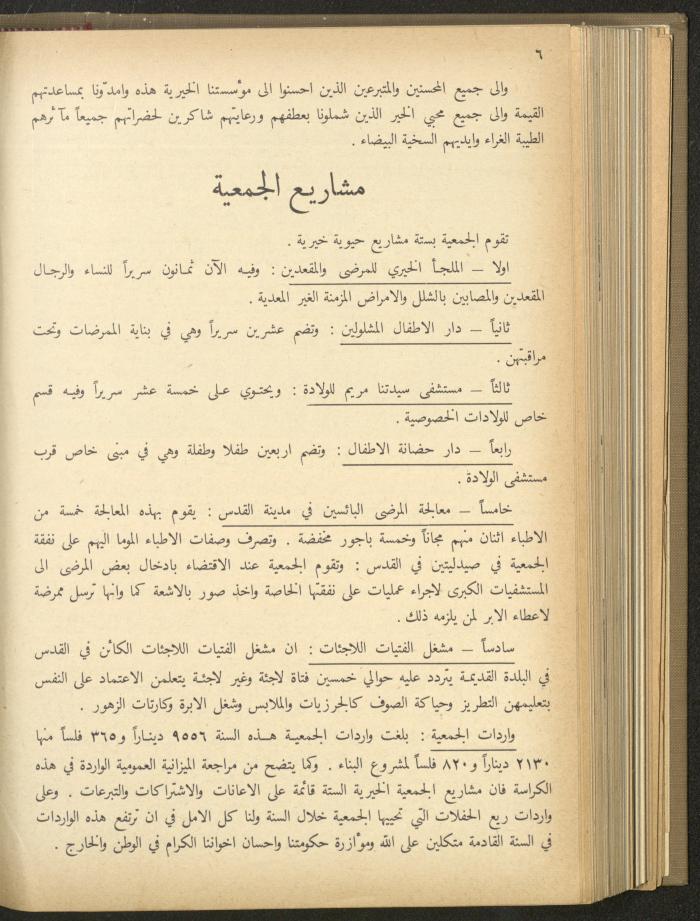 ٦
والى جميع المحسنين والمتبرعين الذين احسنوا الى مؤسستنا الخيرية هذه وامدّونا بمساعدتهم
القيمة والى جميع محبي الخير الذين شملونا بعطفهم ورعايتهم شاكرين لحضراتهم جميعاً مآثرهم
الطيبة الغراء وايديهم السخية البيضاء .
مشاريع الجمعية
تقوم الجمعية بستة مشاريع حيوية خيرية .
اولا – الملجأ الخيري للمرضى والمقعدين : وفيه الآن ثمانون سريراً للنساء والرجال
المقعدين والمصابين بالشلل والامراض المزمنة الغير المعدية .
ثانياً – دار الاطفال المشلولين : وتضم عشرين سريراً وهي في بناية الممرضات وتحت
مراقبتهن .
ثالثاً – مستشفى سيدتنا مريم للولادة : ويحتوي على خمسة عشر سريراً وفيه قسم
خاص للولادات الخصوصية .
رابعاً – دار حضانة الاطفال : وتضم اربعين طفلا وطفلة وهي في مبنى خاص قرب
مستشفى الولادة .
خامساً – معالجة المرضى البائسين في مدينة القدس : يقوم بهذه المعالجة خمسة من
الاطباء اثنان منهم مجاناً وخمسة باجور مخفضة . وتصرف وصفات الاطباء الموما اليهم على نفقة
الجمعية في صيدليتين في القدس : وتقوم الجمعية عند الاقتضاء بادخال بعض المرضى الى
المستشفيات الكبرى لاجراء عمليات على نفقتها الخاصة واخذ صور بالاشعة كما وانها ترسل ممرضة
لاعطاء الابر لمن يلزمه ذلك .
سادساً – مشغل الفتيات اللاجئات : ان مشغل الفتيات اللاجئات الكائن في القدس
في البلدة القديمة يتردد عليه حوالي خمسين فتاة لاجئة وغير لاجئة يتعلمن الاعتماد على النفس
بتعليمهن التطريز وحياكة الصوف كالجرزيات والملابس وشغل الابرة وكارتات الزهور .
واردات الجمعية : بلغت واردات الجمعية هذه السنة ٩٥٥٦ ديناراً و٣٦٥ فلساً منها
٢١٣٠ ديناراً و٨٢٠ فلساً لمشروع البناء . وكما يتضح من مراجعة الميزانية العمومية الواردة في هذه
الكراسة فان مشاريع الجمعية الخيرية الستة قائمة على الاعانات والاشتراكات والتبرعات . وعلى
واردات ريع الحفلات التي تحييها الجمعية خلال السنة ولنا كل الامل في ان ترتفع هذه الواردات
في السنة القادمة متكلين على الله ومؤازرة حكومتنا واحسان اخواننا الكرام في الوطن والخارج .